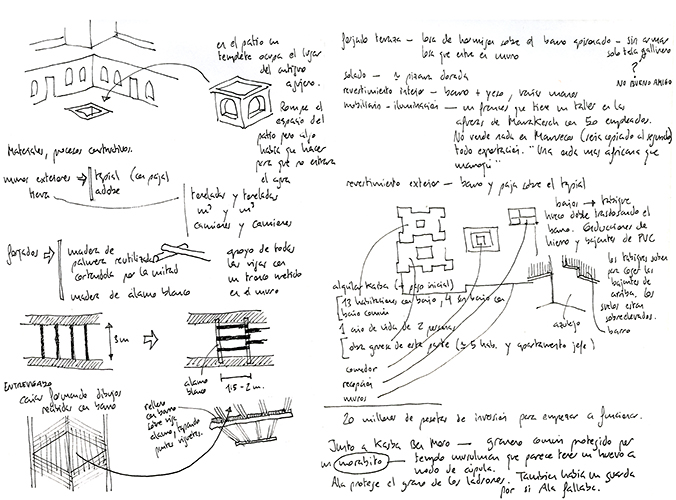 en el patio un
templete ocupa el lugar
del antiguo
agujero.
Rompe el
espacio del
patio pero algo
había que hacer
para que no entrara
el agua
Materiales, procesos constructivos.
muros exteriores
tierra
tapial (con paja)
adobe
toneladas y toneladas
m³ y m³
camiones y camiones
forjados
madera de
palmera reutilizada
cortándola por la mitad
madera de álamo blanco
apoyo de todas
las vigas con
un tronco metido
en el muro
3m
álamo
blanco
1.5 - 2m.
ENTREVIGADO
cañas formando dibujos
recibidas con barro
relleno
con barro
sobre vigas
álamo, tapando
puntas viguetas.
forjado terraza - losa de hormigón sobre el barro apisonado - sin armar
losa que entra en muro
solo tela gallinero
?
NO BUENO AMIGO
solado - pizarra dorada
revestimiento interior - barro + yeso, varias manos
mobiliario - iluminación - un frances que tiene un taller en las
afueras de Marrakesch con 50 empleados.
No vende nada en Marruecos (sería copiado al segundo)
todo exportación. "Una onda mas africana que
marroquí"
revestimiento exterior - barro y paja sobre el tapial
baños → tabique
hueco doble trasdosando el
barro. Conducciones de
hierro y bajantes de PVC
los tabiques suben
para coger las
bajantes de
arriba. Los
suelos están
sobreelevados.
barro
azulejo
alquilar Kasba (+ pago inicial)
13 habitaciones con baño, 4 sin baño con
baño común
1 año de vida de 2 personas
obra gruesa de esta parte (≈ 5 hab. y apartamento jefe)
comedor
recepción
muros
20 millones de pesetas de inversión para empezar a funcionar.
Junto a Kasba Ben Moro - granero común protegido por
un morabito - templo musulman que parece tener un huevo a
modo de cúpula.
Ala protege el grano de los ladrones. Tambien había un guarda
por si Ala fallaba.